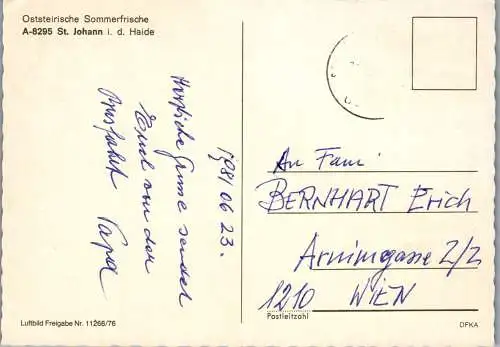 Oststeirische Sommerfrische
A-8295 St. Johann i. d. Haide
1981 06 23.
Herzliche Grüsse sendet
Euch von der
Ausfahrt Papa
An Fam.
BERNHART Erich
Arnimgasse 2/2
1210 WIEN
Postleitzahl
Luftbild Freigabe Nr. 11266/76
DFKA